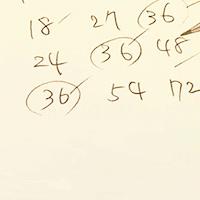 18 27 36
24 36 48
36 54 72